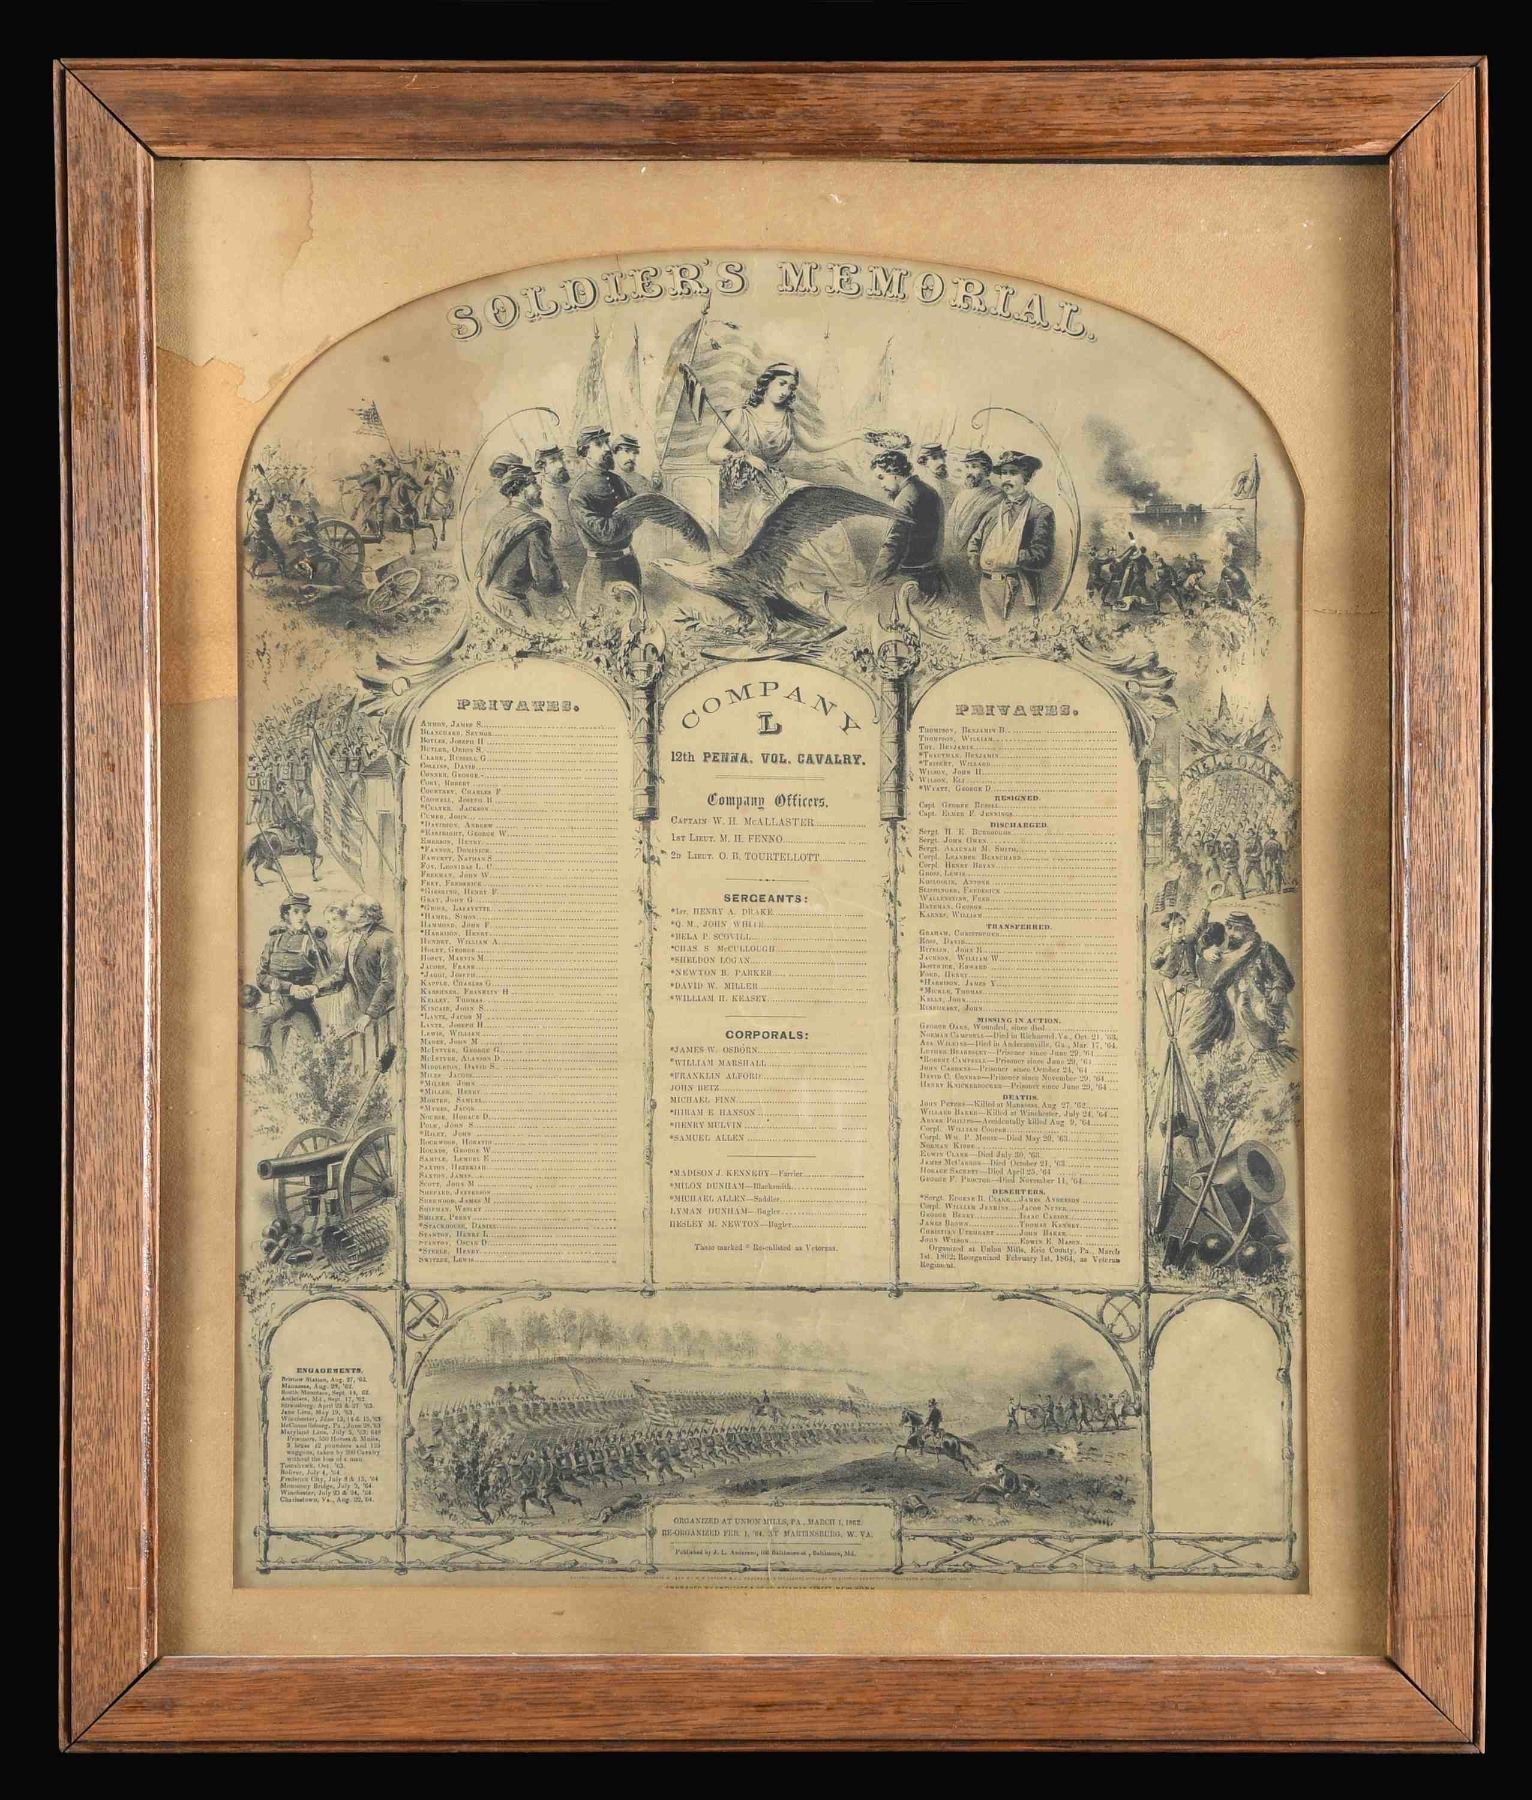 SOLDIER'S MEMORIAL.
PRIVATES.
James S.
Blanchard, Seymor
Boyles, Joseph H
Butler, Orrin S.
Clark, Russell G
Collins, David
Conner, George
Cory, Robert
Courtney, Charles F.
Crowell, Joseph R
*Culver, Jackson
John
*Davidson, Andrew
George W.
Emerson, Henry
*Fannon, Dominick
Fawcett, Nathan S
Foy, Leonidas L. C.
Freeman, John W.
Frey, Frederick
Henry F.
Gray, John G
Lafayette
*Hamel, Simon
Hammond, John F.
*Harrison, Henry
Hendry, William A.
Holey, George
Marvin M.
Jacobs, Frank
Joseph
Kapple, Charles G
Karshner, Franklin H
Kelley, Thomas
Kincaid, John S.
*Lantz, Jacob M
Lantz, Joseph H
Lewis, William
John M
McIntyre, George G.
McIntyre, Alanson D.
Middleton, David S.
Miles, Jacob
*Miller, John
*Miller, Henry
Samuel
*Myers, Jacob
Nourse, Horace D.
Polk, John S.
*Riley, John
Rockwood, Horatio
Rounds, George W.
Sample, Lemuel E
Saxton, Hezekiah
Saxton, James
Scott, John M
Shepard, Jefferson
Sherwood, James M
Shipman, Wesley
Smiley, Perry
*Stackhouse, Daniel
Stanton, Henry L
Stanton, Oscar D
*Steele, Henry
Switzer, Lewis
COMPANY
L
12th PENNA. VOL. CAVALRY.
Company Officers.
Captain W. H. McALLASTER
1st Lieut. M. H. FENNO
2d Lieut. O. B. TOURTELLOTT
SERGEANTS:
*1st, HENRY A. DRAKE
*Q. M., JOHN WHITE
*BELA P. SCOVILL
*CHAS S McCULLOUGH
*SHELDON LOGAN
*NEWTON B. PARKER
*DAVID W. MILLER
*WILLIAM H. KEASEY
CORPORALS:
*JAMES W. OSBORN
*WILLIAM MARSHALL
*FRANKLIN ALFORD
JOHN BETZ
MICHAEL FINN
*HIRAM E HANSON
*HENRY MULVIN
*SAMUEL ALLEN
*MADISON J. KENNEDY—Farrier
*MILON DUNHAM—Blacksmith
*MICHAEL ALLEN—Saddler
LYMAN DUNHAM—Bugler
HESLEY M. NEWTON—Bugler
Those marked * Re-enlisted as Veterans.
PRIVATES.
Thompson, Benjamin B.
Thompson, William
Toy, Benjamin
*Trautman, Benjamin
Willard
Wilson, John H
Wilson, Eli
*Wyatt, George D
RESIGNED.
Capt. George Russel
Capt. Elmer F. Jennings
DISCHARGED.
Sergt. H. E. Burroughs
Sergt. John Owen
Sergt. M. Smith
Corpl. Leander Blanchard
Corpl. Henry Bryan
Gross, Lewis
Antone
Frederick
Fred
Bateman, George
Karnes, William
TRANSFERRED.
Graham, Christopher
Ross, David
John B
Jackson, William W
Bostwick, Edward
Ford, Henry
*Harrison, James Y
*Mickle, Thomas
Kelly, John
Rineheart, John
MISSING IN ACTION.
George Oaks, Wounded, since died
Norman Campbell—Died in Richmond Va., Oct. 21, '63.
Asa Wilkins—Died in Andersonville, Ga., Mar. 17, '64.
Luther Beardsley—Prisoner since June 29, '64
*Robert Campbell—Prisoner since June 29, '64
John Carrens—Prisoner since October 24, '64
David C. Connar—Prisoner since November 29, '64
Henry Knickerbocker—Prisoner since June 29, '64
DEATHS.
John Peters—Killed at Manassas, Aug. 27, '62
Willard Baker—Killed at Winchester, July 24, '64
Abner Philips—Accidentally killed Aug. 9, '64
Corpl. William Cooper
Corpl. Wm. P. Moore—Died May 20, '63
Norman Kibbe
Edwin Clark—Died July 30, '63.
James McCarron—Died October 21, '63
Horace Sackett—Died April 25, '64
George F. Proctor—Died November 11, '64
DESERTERS.
*Sergt. Eugene B. Clake James Anderson
Corpl. William Jenkins Jacob
George Berry Isaac Carson
James Brown Thomas Kenney
Christian John Baker
John Wilson Edwin E. Mason
Organized at Union Mills, Erie County, Pa., March
1st, 1862; Reorganized February 1st, 1864, as Veteran
Regiment.
WELCOME
ENGAGEMENTS.
Bristow Station, Aug. 27, '62.
Manassas, Aug. 29, '62.
South Mountain, Sept. 14, 62.
Antietam, Md., Sept. 17, '62
Strausburg, April 23 & 27 '63.
Jane Lieu, May 19, '63.
Winchester, June 13, 14 & 15, '63
McConnellsburg, Pa., June 28, '63
Maryland Line, July 5, '63; 649
Prisoners, 550 Horses & Mules,
3 brass 12 pounders and 125
waggons, taken by 200 Cavalry
without the loss of a man
Tomahawk, Oct. '63.
Bolivar, July 4, '64
Frederick City, July 8 & 13, '64
Monocacy Bridge, July 9, '64.
Winchester, July 23 & 24, '64.
Charlestown, Va., Aug. 22, '64.
ORGANIZED AT UNION MILLS, PA., MARCH 1, 1862.
RE-ORGANIZED FEB. 1, '64, AT MARTINSBURG, W. VA.
Published by J. L. Anderson, 166 Baltimore st., Baltimore, Md.